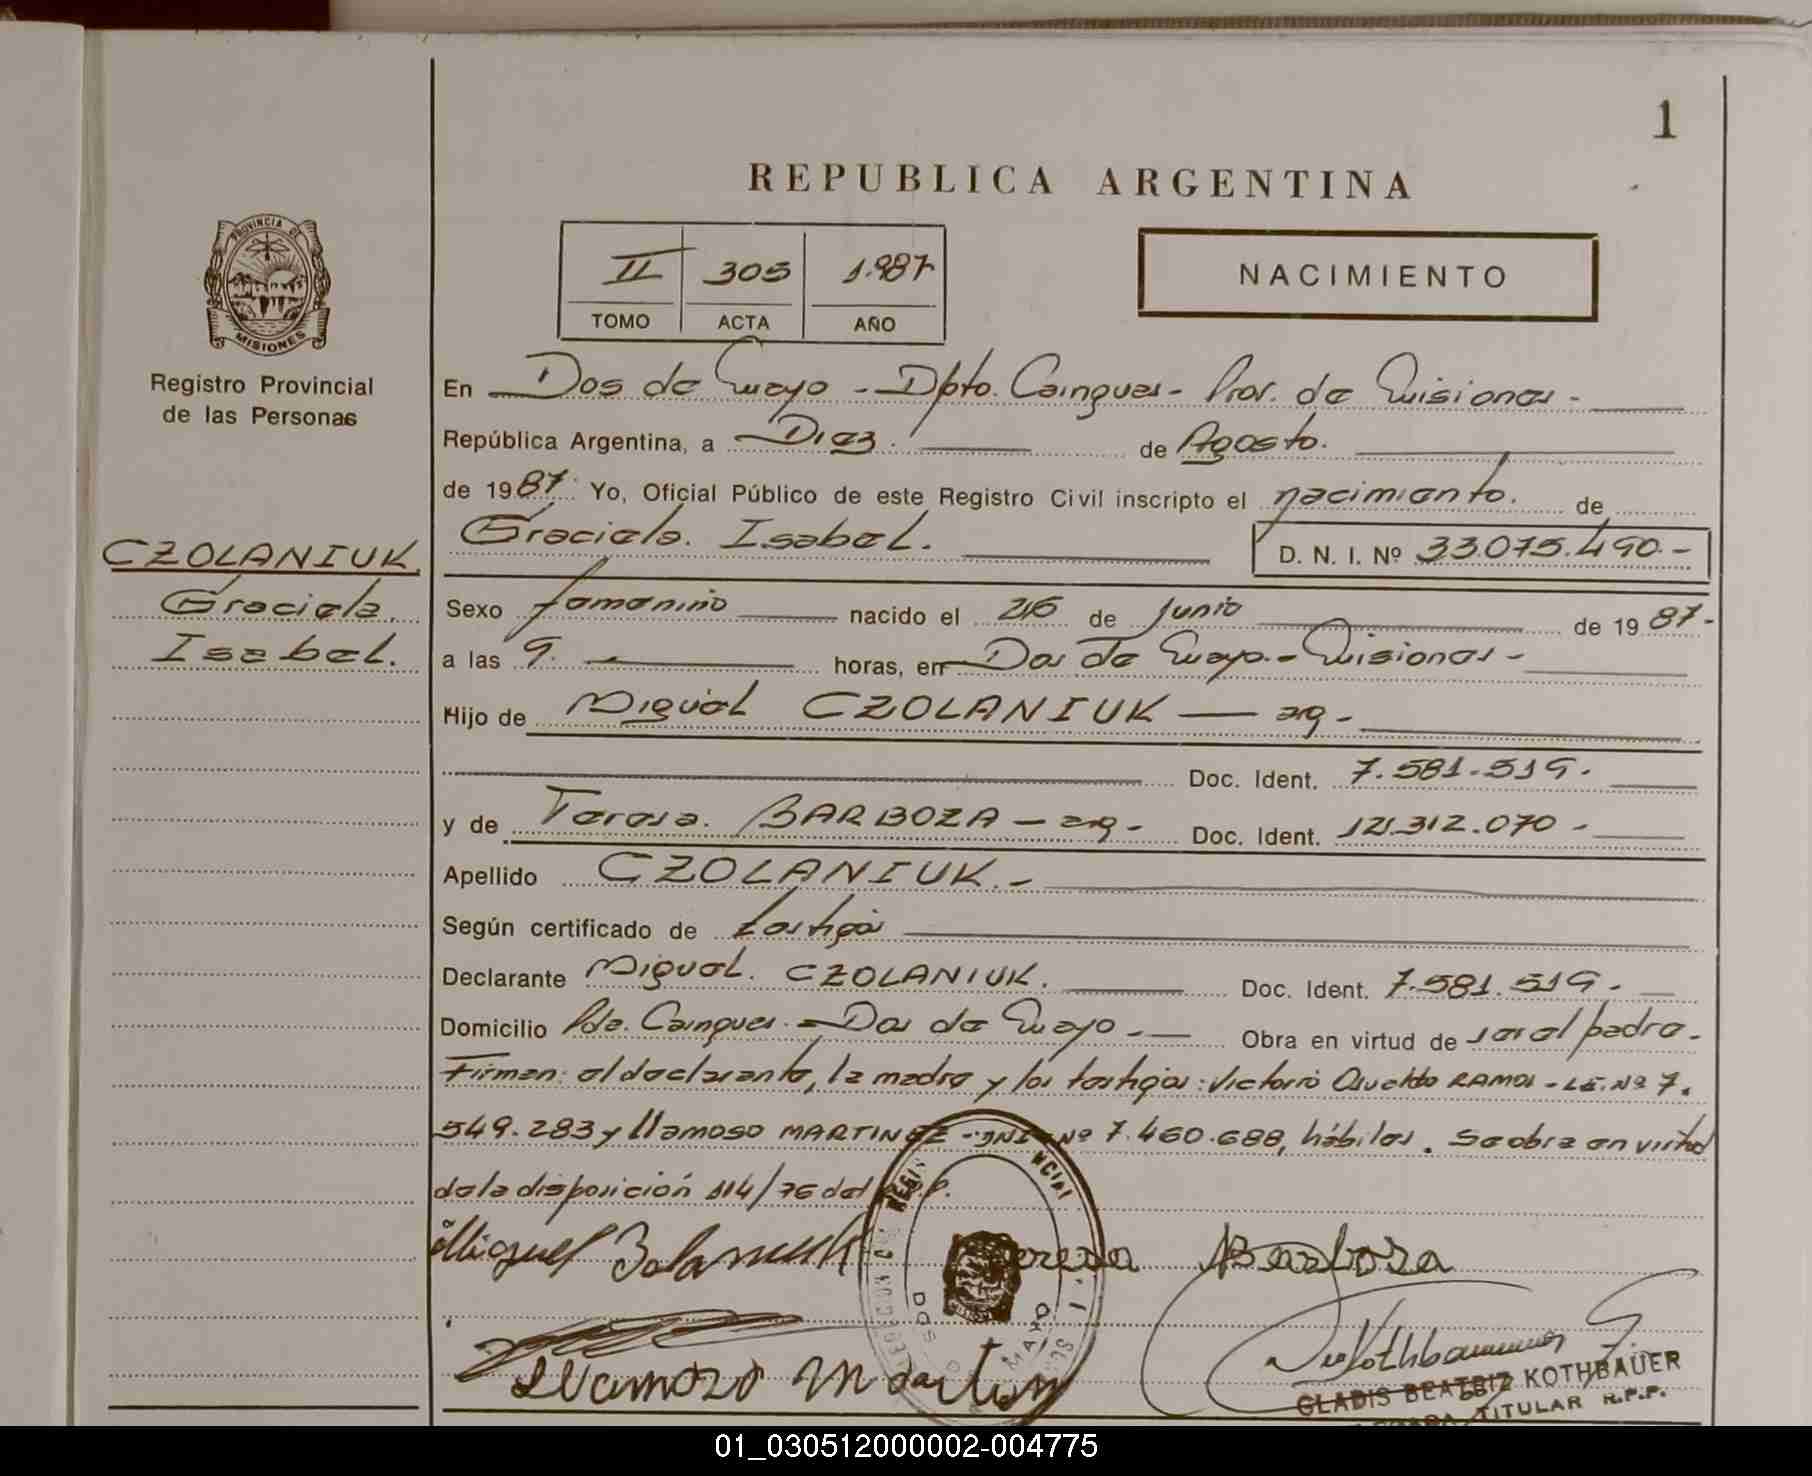 1
REPUBLICA ARGENTINA
PROVINCIA DE
MISIONES
II 305 1.987
TOMO ACTA AÑO
NACIMIENTO
Registro Provincial
de las Personas
CZOLANIUK.
Graciela.
Isabel.
En Dos de Mayo - Dpto. Cainguas - Prov. de Misiones -
República Argentina, a Diez. de Agosto.
de 1987. Yo, Oficial Público de este Registro Civil inscripto el nacimiento. de
Graciela. Isabel. D. N. I. Nº 33.075.490.-
Sexo femenino nacido el 26 de Junio de 1987-
a las 9. horas, en Dos de Mayo - Misiones -
Hijo de Miguel CZOLANIUK — arg -
Doc. Ident. 7.581.519.
y de Teresa. BARBOZA - arg - Doc. Ident. 12.312.070 -
Apellido CZOLANIUK.-
Según certificado de testigos
Declarante Miguel. CZOLANIUK. Doc. Ident. 7.581.519.
Domicilio Pde. Cainguas - Dos de Mayo - Obra en virtud de ser el padre.
Firman: el declarante, la madre y los testigos: Victorio Osvaldo RAMOS - LE. Nº 7.
549.283 y Llamoso MARTINEZ - DNI Nº 7.460.688, hábiles. Se obra en virtud
de la disposición 114/76 del R.P.P.
Miguel Teresa Barboza
DOS DE MAYO
GLADIS BEATRIZ KOTHBAUER
TITULAR R.P.P.
01_030512000002-004775